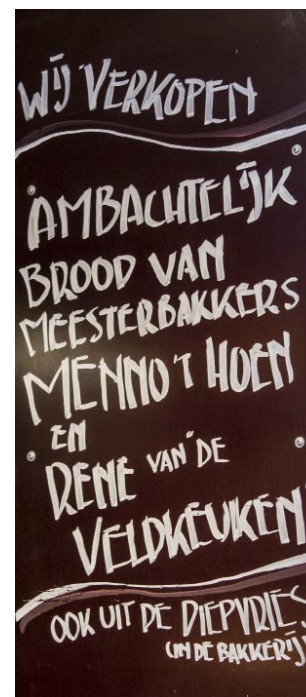 WIJ VERKOPEN
AMBACHTELIJK
BROOD VAN
MEESTERBAKKERS
MENNO 'T HOEN
EN
RENE VAN DE
VELDKEUKEN
OOK UIT DE DIEPVRIES
(IN DE BAKKERIJ